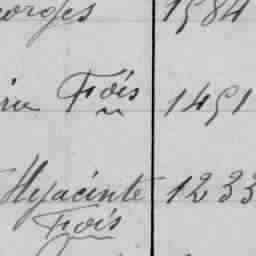 orges 1584
Frois 1491
Hyacinte 1233
Frois